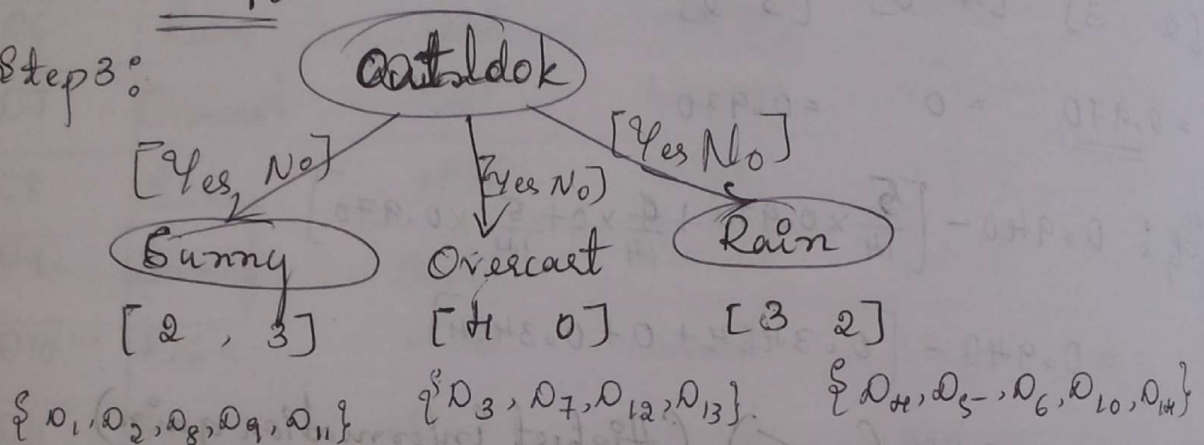 Step 3:
Outlook
[Yes, No] [Yes No] [Yes No]
Sunny Overcast Rain
[2 , 3] [4 0] [3 2]
{D1, D2, D8, D9, D11} {D3, D7, D12, D13}. {D4, D5, D6, D10, D14}